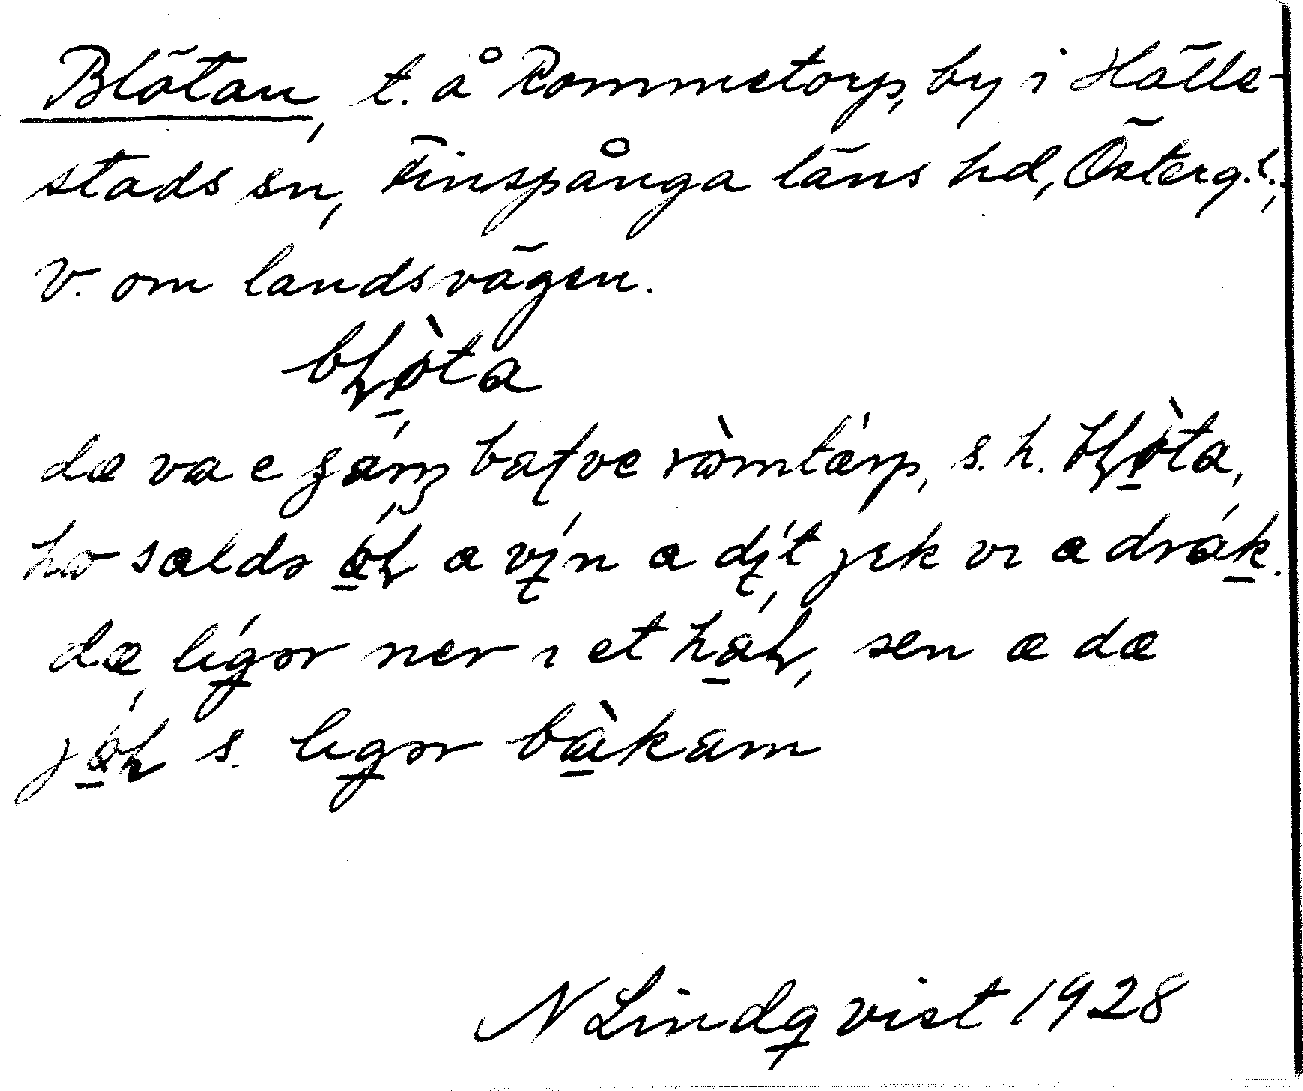 Blötan, t. å Rommetorp, by i Hälle-
stads sn, Finspånga läns hd, Österg.l.;
V. om landsvägen.
bḷò̱ta
dæ va e gáŋ bakve ròmtærp, s.h. bḷò̱ta,
ho sældə ǿḷ a vín a dít jɪk vɪ a drák.
dæ lígər ner ɪ et háḷ, sen æ dæ
jǿḷ s. ligər bàkam
N Lindqvist 1928